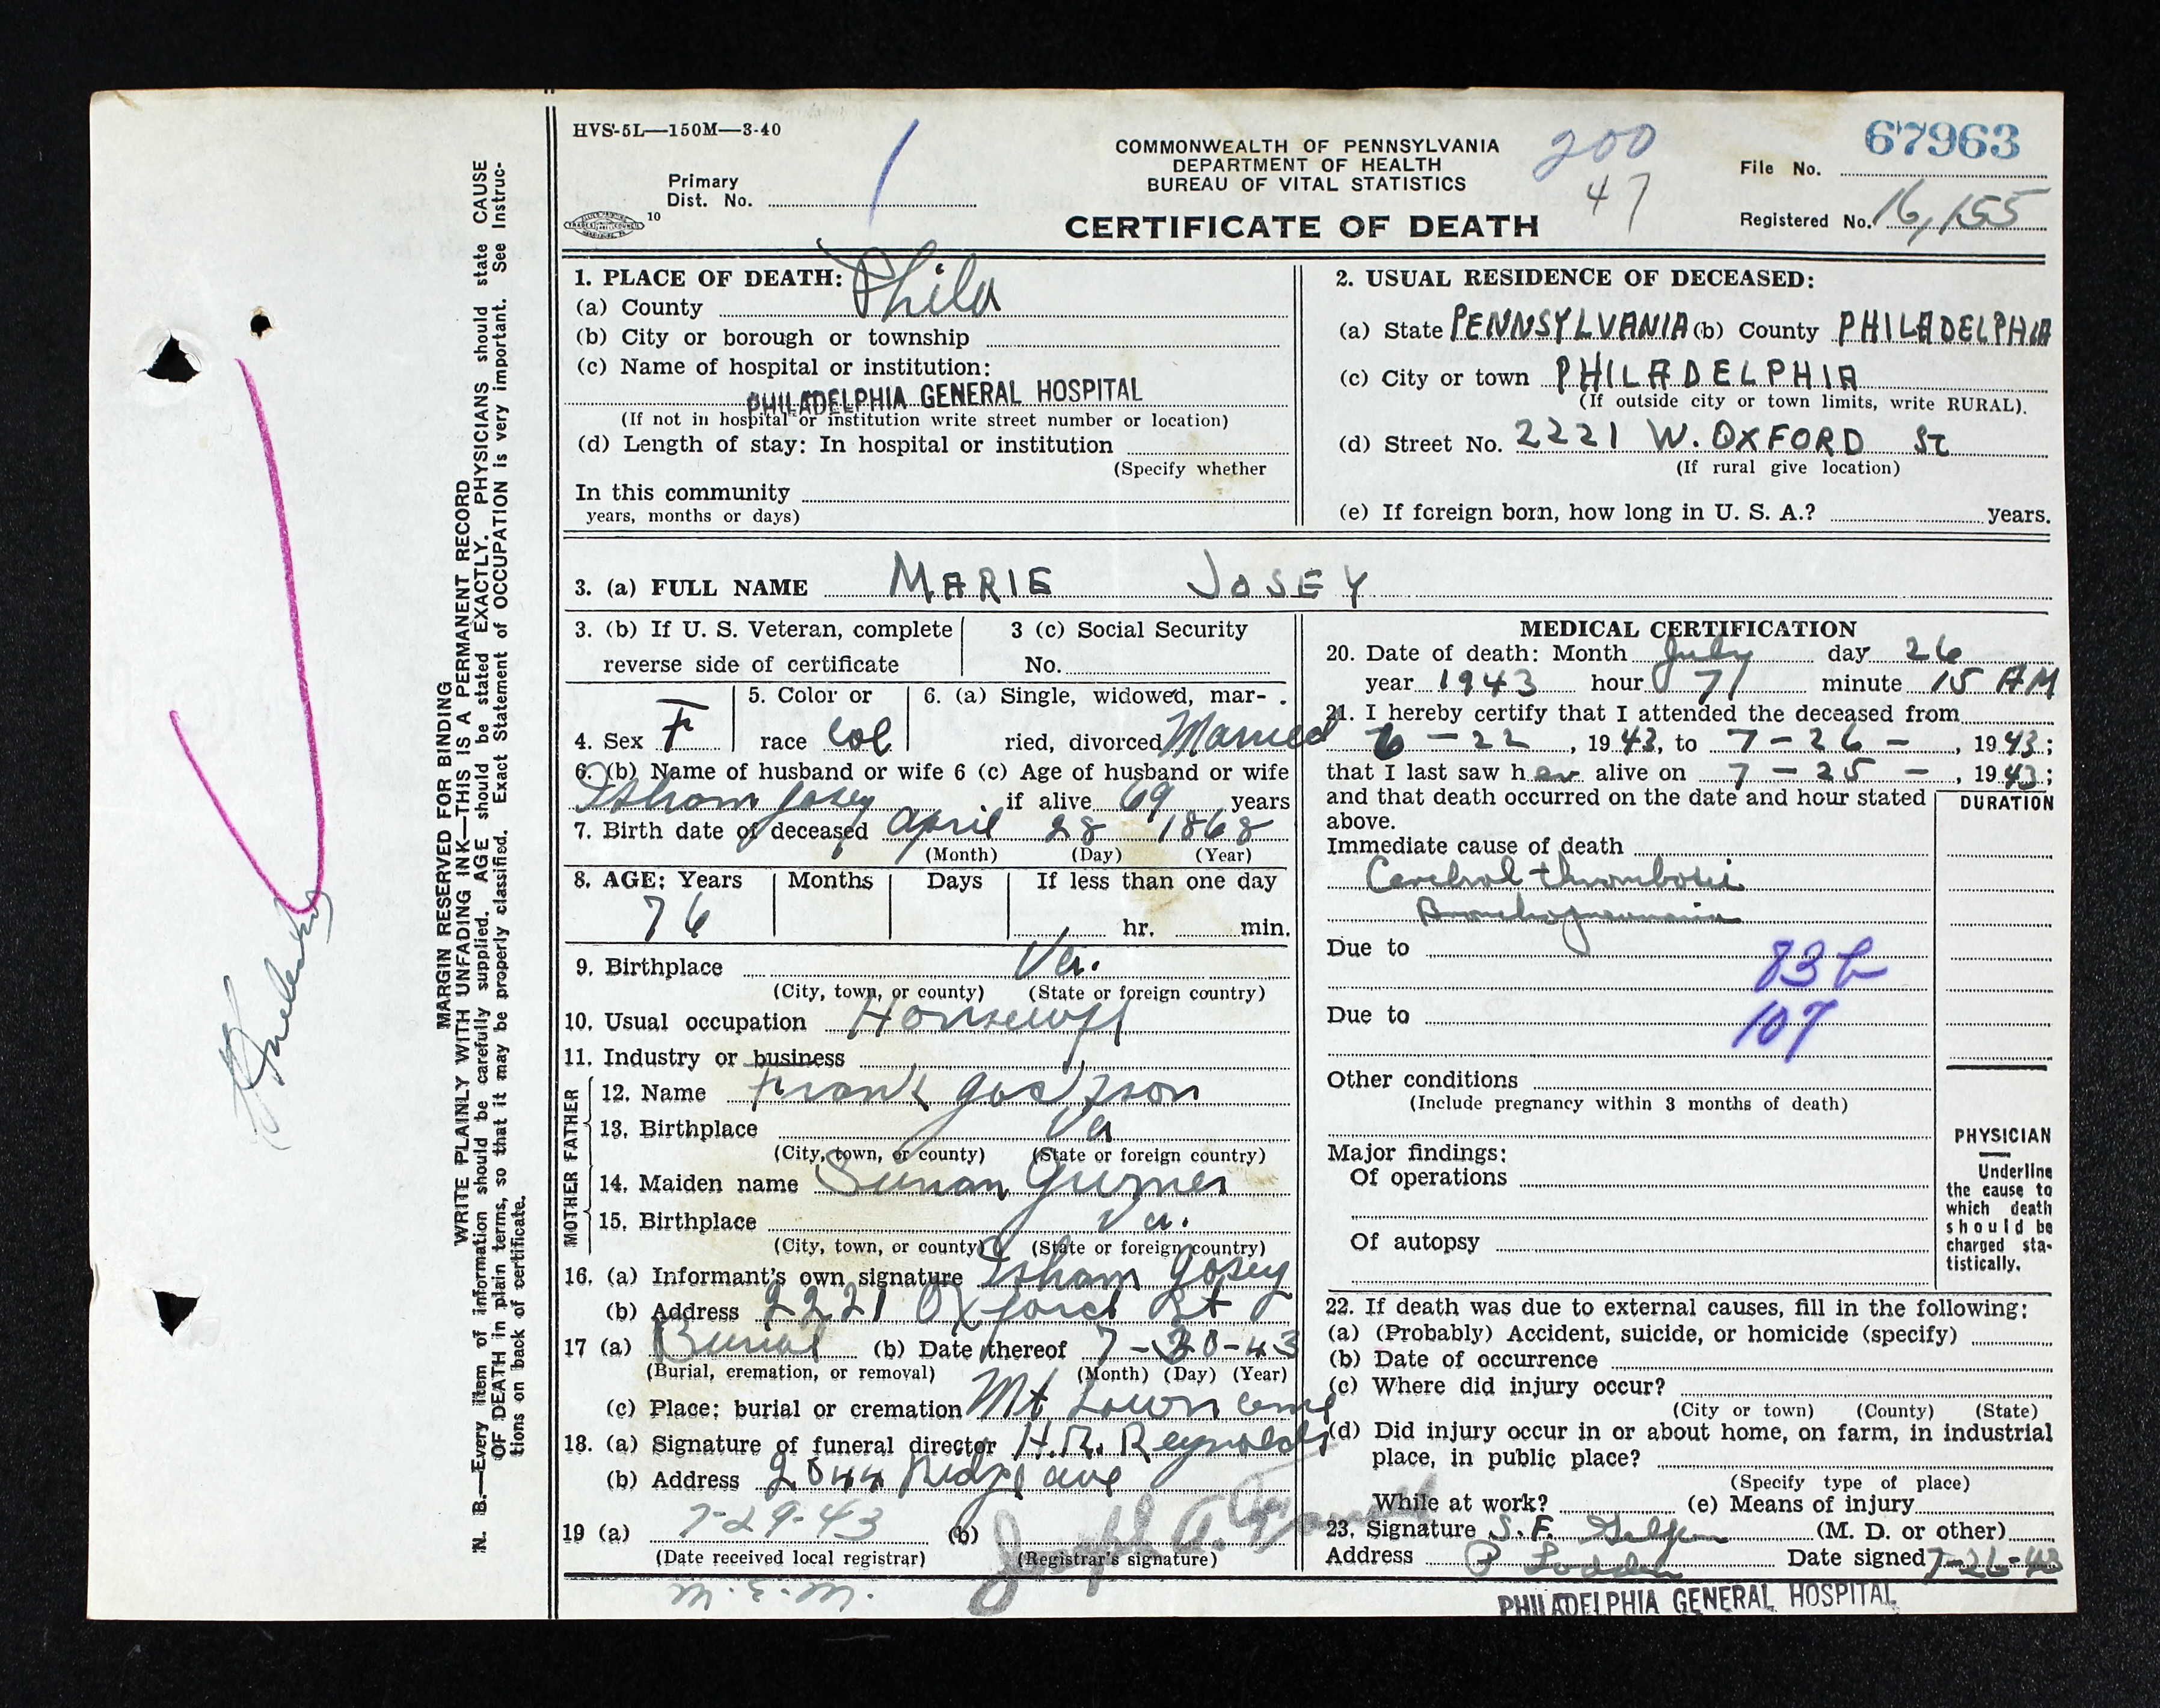 HVS-5L—150M—3-40
COMMONWEALTH OF PENNSYLVANIA
DEPARTMENT OF HEALTH
BUREAU OF VITAL STATISTICS
CERTIFICATE OF DEATH
Primary
Dist. No. 1
10
200
47
File No. 67963
Registered No. 16,155
MARGIN RESERVED FOR BINDING
WRITE PLAINLY WITH UNFADING INK—THIS IS A PERMANENT RECORD
N. B.—Every item of information should be carefully supplied. AGE should be stated EXACTLY. PHYSICIANS should state CAUSE
OF DEATH in plain terms, so that it may be properly classified. Exact Statement of OCCUPATION is very important. See Instruc-
tions on back of certificate.
1. PLACE OF DEATH:
(a) County Phila
(b) City or borough or township
(c) Name of hospital or institution:
PHILADELPHIA GENERAL HOSPITAL
(If not in hospital or institution write street number or location)
(d) Length of stay: In hospital or institution
(Specify whether
In this community
years, months or days)
2. USUAL RESIDENCE OF DECEASED:
(a) State PENNSYLVANIA (b) County PHILADELPHIA
(c) City or town PHILADELPHIA
(If outside city or town limits, write RURAL).
(d) Street No. 2221 W. OXFORD St
(If rural give location)
(e) If foreign born, how long in U. S. A.? years.
3. (a) FULL NAME MARIE JOSEY
3. (b) If U. S. Veteran, complete
reverse side of certificate
3 (c) Social Security
No.
4. Sex F
5. Color or
race Col
6. (a) Single, widowed, mar-
ried, divorced Married
6. (b) Name of husband or wife
Isham Josey
6 (c) Age of husband or wife
if alive 69 years
7. Birth date of deceased April 28 1868
(Month) (Day) (Year)
8. AGE: Years Months Days If less than one day
76 hr. min.
9. Birthplace Va.
(City, town, or county) (State or foreign country)
10. Usual occupation Housewife
11. Industry or business
FATHER
12. Name Frank
13. Birthplace Va
(City, town, or county) (State or foreign country)
MOTHER
14. Maiden name Susan
15. Birthplace Va.
(City, town, or county) (State or foreign country)
16. (a) Informant's own signature Isham Josey
(b) Address 2221 Oxford St
17 (a) Burial (b) Date thereof 7-30-43
(Burial, cremation, or removal) (Month) (Day) (Year)
(c) Place: burial or cremation Mt Lawn Cem
18. (a) Signature of funeral director H.R. Reynolds
(b) Address 2044 Ridge ave
19 (a) 7-29-43 (b) Joseph A.
(Date received local registrar) (Registrar's signature)
M.E.M.
MEDICAL CERTIFICATION
20. Date of death: Month July day 26
year 1943 hour 7 minute 15 AM
21. I hereby certify that I attended the deceased from
6-22, 1943, to 7-26-, 1943;
that I last saw her alive on 7-25-, 1943;
and that death occurred on the date and hour stated
above.
DURATION
Immediate cause of death
Cerebral thrombosis
Bronchopneumonia
Due to
83b
Due to
107
Other conditions
(Include pregnancy within 3 months of death)
Major findings:
Of operations
Of autopsy
PHYSICIAN
Underline
the cause to
which death
should be
charged sta-
tistically.
22. If death was due to external causes, fill in the following:
(a) (Probably) Accident, suicide, or homicide (specify)
(b) Date of occurrence
(c) Where did injury occur?
(City or town) (County) (State)
(d) Did injury occur in or about home, on farm, in industrial
place, in public place?
(Specify type of place)
While at work? (e) Means of injury
23. Signature S. F. (M. D. or other)
Address Date signed 7-26-43
PHILADELPHIA GENERAL HOSPITAL